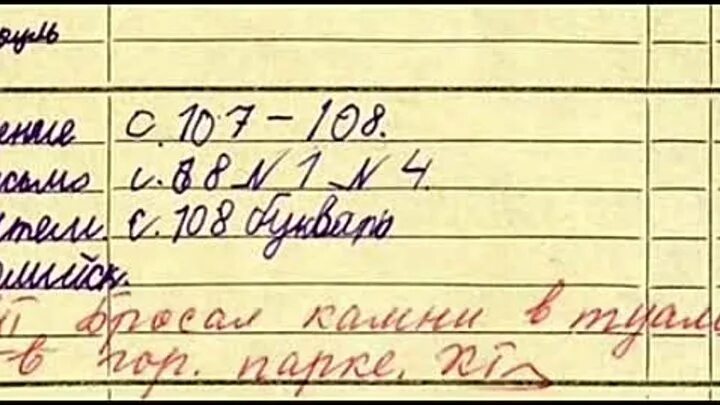 ение с. 107 – 108.
сьмо с. 68 N 1 N 4.
с. 108 букварь
бросал камни в туал
в гор. парке.